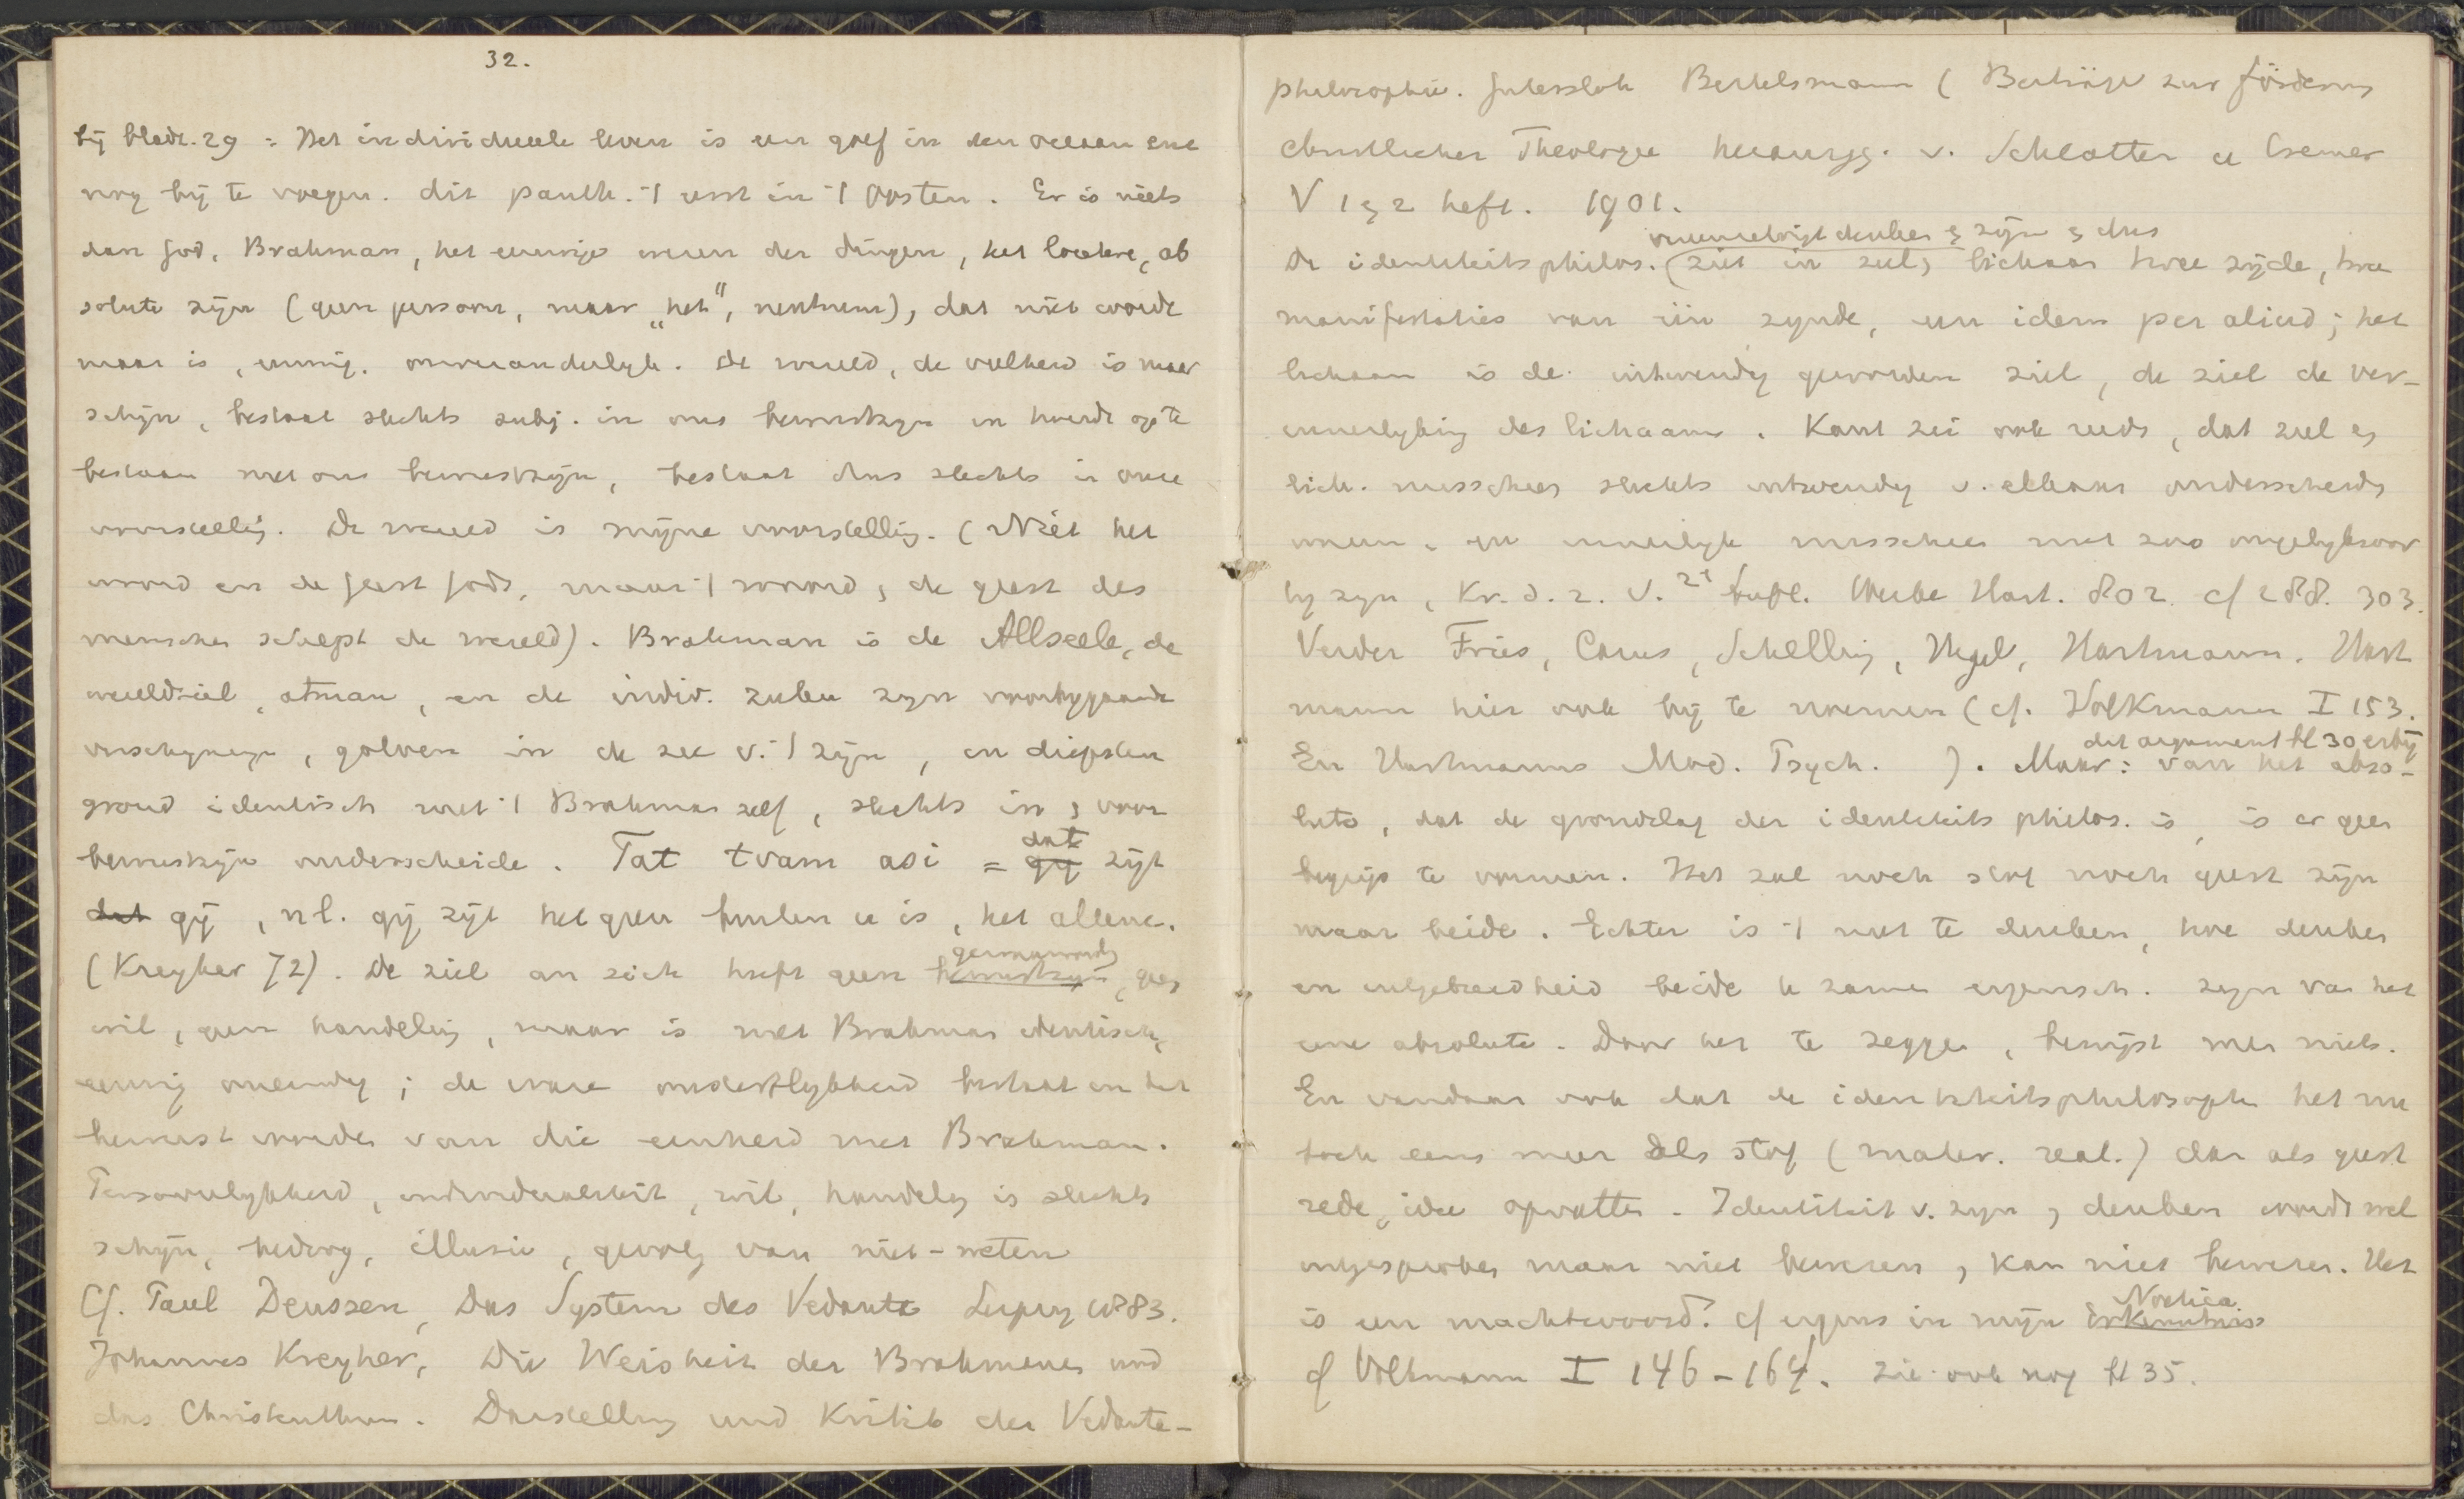 32.
bij bladz. 29 : Het individueele leven is een golf in den oceaan enz
nog bij te voegen. dit panth. -| rust in -| Oosten. Er is niets
dan God, Brahman, het eeuwige wezen der dingen, het loutere, ab
solute zijn (geen persoon, maar „het", neutrum), dat niet wordt
maar is, eeuwig. onveranderlyk. De wereld, de veelheid is maar
schijn, bestaat slechts subj. in ons bewustzyn en houdt op te
bestaan met ons bewustzijn, bestaat dus slechts in onze
voorstelling. De wereld is mijne voorstelling. (Niet het
woord en de geest Gods, maar -| woord & de geest des
menschen schept de wereld). Brahman is de Allseele, de
wereldziel, atman, en de indiv. zielen zyn voorbygaande
verschyningen, golven in de zee v. -| zijn, en diepsten
grond identisch met -| Brahman zelf, slechts in & voor
bewustzijn onderscheiden. Tat tvam asi = dat zijt
gij, nl. gij zijt hetgeen buiten u is, het alleene.
(Kreyher 72). De ziel an sich heeft geen bewustzyn, geen
wil, geen handeling, maar is met Brahman identisch,
eeuwig oneindig ; de ware onsterflykheid bestaat in het
bewust worden van die eenheid met Brahman.
Persoonlykheid, individualiteit, wil, handeling is slechts
schijn, bedrog, illusie, gevolg van niet-weten
Cf. Paul Deussen, Das System des Vedanta Leipzig 1883.
Johannes Kreyher, Die Weisheit der Brahmanen und
das Christenthum. Darstellung und Kritik der Vedanta-
philosophie. Gütersloh Bertelsmann (Beiträge zur Förderung
christlicher Theologie herausgg. v. Schlatter u Cremer
V 1 & 2 heft. 1901.
denken & zijn & dus
De identiteitsphilos. (ziet in ziel & lichaam twee zijden, twee
manifestaties van één zynde, een idem per aliud ; het
lichaam is de uitwendig geworden ziel, de ziel de ver-
innerlyking des lichaams. Kant zei ook reeds, dat ziel &
lich. misschien slechts uitwendig v. elkaar onderscheiden
waren, en innerlyk misschien niet zoo ongelyksoor
tig zyn, Kr. d. r. V. 2e Aufl. Werke Hart. 802. cf 288. 303.
Verder Fries, Carus, Schelling, Hegel, Hartmann. Hart
mann hier ook bij te noemen (cf. Volkmann I 153.
dit argument bl 30 erbij
En Hartmanns Mod. Psych. ). Maar : van het abso-
lute, dat de grondslag der identiteits philos. is, is er geen
begrip te vormen. Het zal noch stof noch geest zijn
maar beide. Echter is -| niet te denken, hoe denken
en uitgebreidheid beide te zamen eigensch. zyn van het
eene absolute. Door het te zeggen, bewijst men niets.
En vandaar ook dat de identiteitsphilosophen het nu
toch eens meer als stof (mater. real.) dan als geest
rede, idee opvatten. Identiteit v. zyn & denken wordt wel
uitgesproken maar niet bewezen, & kan niet bewezen. Het
is een machtwoord. cf ergens in mijn Noetica
cf Volkmann I 146-164. zie ook nog bl 35.